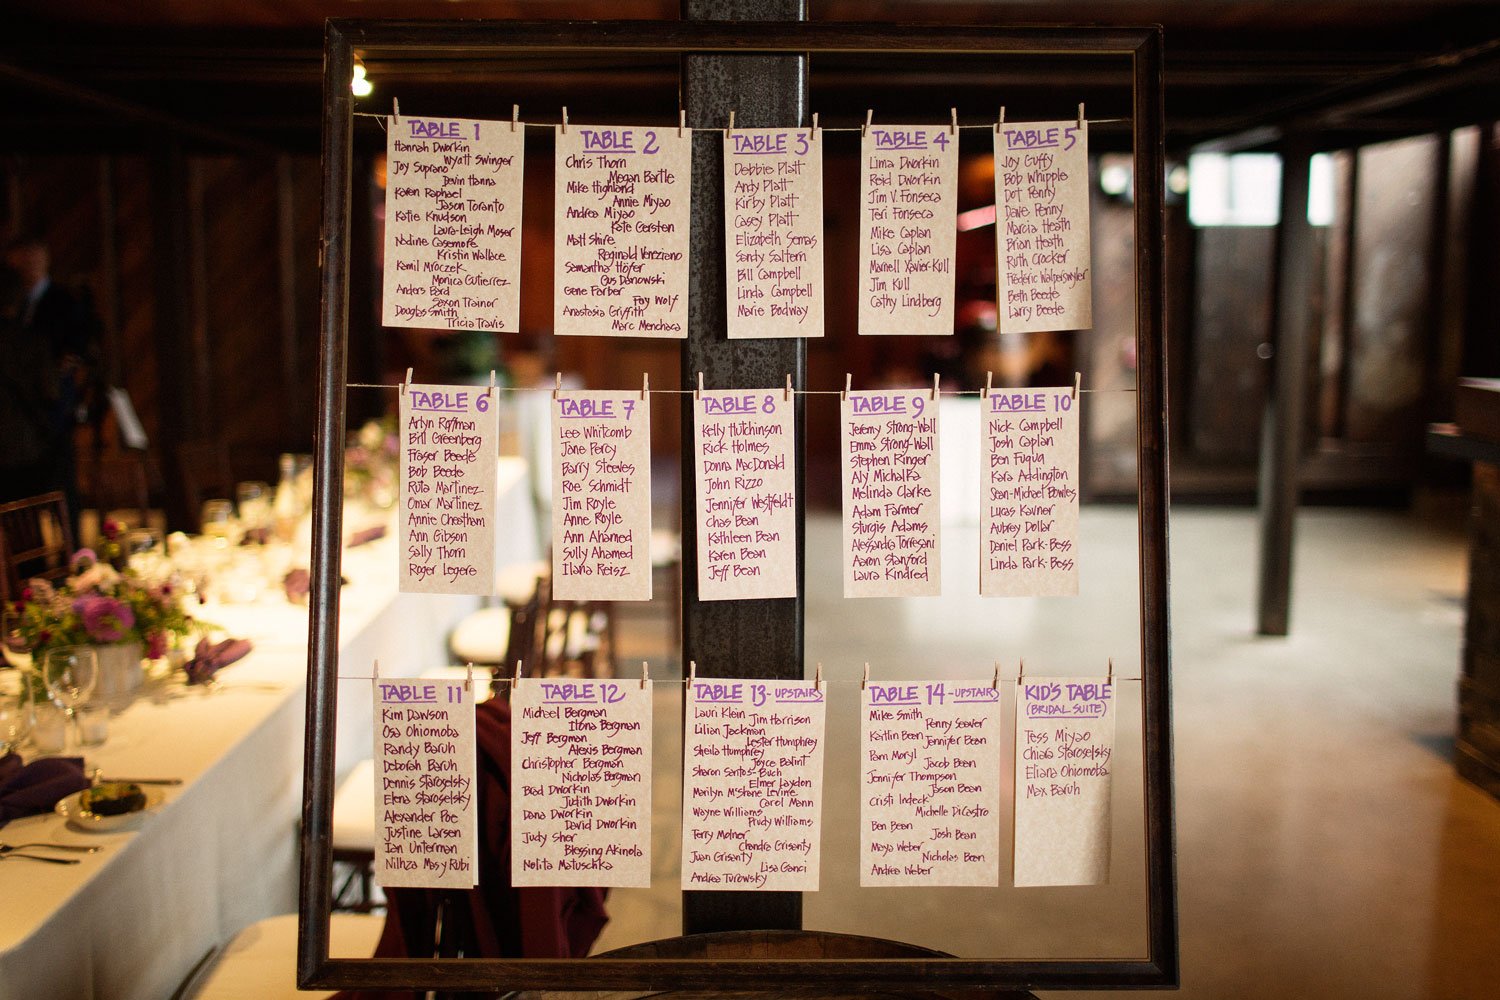 TABLE 1
Hannah Dworkin
Wyatt Swinger
Joy Suprano
Devin Hanna
Karen Raphael
Jason Toranto
Katie Knudson
Laura-Leigh Moser
Nadine Casemore
Kristin Wallace
Kamil Mroczek
Monica Gutierrez
Anders Bard
Saxon Trainor
Douglas Smith
Tricia Travis
TABLE 2
Chris Thorn
Megan Bartle
Mike Highland
Annie Miyao
Andrea Miyao
Kate Gersten
Matt Shire
Reginald Veneziano
Samantha Höfer
Gus Danowski
Gene Farber
Fay Wolf
Anastasia Griffith
Marc Menchaca
TABLE 3
Debbie Platt
Andy Platt
Kirby Platt
Casey Platt
Elizabeth Semas
Sandy Saltern
Bill Campbell
Linda Campbell
Marie Bodway
TABLE 4
Lima Dworkin
Reid Dworkin
Jim V. Fonseca
Teri Fonseca
Mike Caplan
Lisa Caplan
Marnell Xavier-Kull
Jim Kull
Cathy Lindberg
TABLE 5
Joy Guffy
Bob Whipple
Dot Penny
Dave Penny
Marcia Heath
Brian Heath
Ruth Crocker
Frédéric Walperswyler
Beth Beede
Larry Beede
TABLE 6
Arlyn Roffman
Bill Greenberg
Fraser Beede
Bob Beede
Ruta Martinez
Omar Martinez
Annie Cheatham
Ann Gibson
Sally Thorn
Roger Legere
TABLE 7
Lee Whitcomb
Jane Percy
Barry Steeves
Roe Schmidt
Jim Royle
Anne Royle
Ann Ahamed
Sully Ahamed
Ilana Reisz
TABLE 8
Kelly Hutchinson
Rick Holmes
Donna MacDonald
John Rizzo
Jennifer Westfeldt
Chas Bean
Kathleen Bean
Karen Bean
Jeff Bean
TABLE 9
Jeremy Strong-Wall
Emma Strong-Wall
Stephen Ringer
Aly Michalka
Melinda Clarke
Adam Farmer
Sturgis Adams
Alessandra Torresani
Aaron Stanford
Laura Kindred
TABLE 10
Nick Campbell
Josh Caplan
Ben Fuqua
Kara Addington
Sean-Michael Bowles
Lucas Kavner
Aubrey Dollar
Daniel Park-Bess
Linda Park-Bess
TABLE 11
Kim Dawson
Osa Ohiomoba
Randy Baruh
Deborah Baruh
Dennis Staroselsky
Elena Staroselsky
Alexander Poe
Justine Larsen
Ian Unterman
Nilhza Mas y Rubi
TABLE 12
Michael Bergman
Ilona Bergman
Jeff Bergman
Alexis Bergman
Christopher Bergman
Nicholas Bergman
Brad Dworkin
Judith Dworkin
Dana Dworkin
David Dworkin
Judy Sher
Blessing Akinola
Nolita Matuschka
TABLE 13 - UPSTAIRS
Lauri Klein
Jim Harrison
Lilian Jackman
Lester Humphrey
Sheila Humphrey
Joyce Balint
Sharon Santos-Buch
Elmer Laydon
Marilyn McShane Levine
Carol Mann
Wayne Williams
Prudy Williams
Terry Molner
Chandra Grisanty
Juan Grisanty
Lisa Ganci
Andrea Turowsky
TABLE 14 - UPSTAIRS
Mike Smith
Penny Seaver
Kaitlin Bean
Jennifer Bean
Pam Moryl
Jacob Bean
Jennifer Thompson
Jason Bean
Cristi Indeck
Michelle DiCastro
Ben Bean
Josh Bean
Maya Weber
Nicholas Bean
Andrea Weber
KID'S TABLE
(BRIDAL SUITE)
Tess Miyao
Chiara Staroselsky
Eliana Ohiomoba
Max Baruh